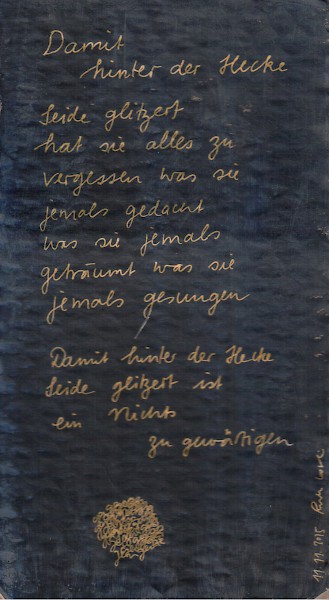 Damit
hinter der Hecke
Seide glitzert
hat sie alles zu
vergessen was sie
jemals gedacht
was sie jemals
geträumt was sie
jemals gesungen
Damit hinter der Hecke
Seide glitzert ist
ein Nichts
zu gewärtigen
11.11.2015